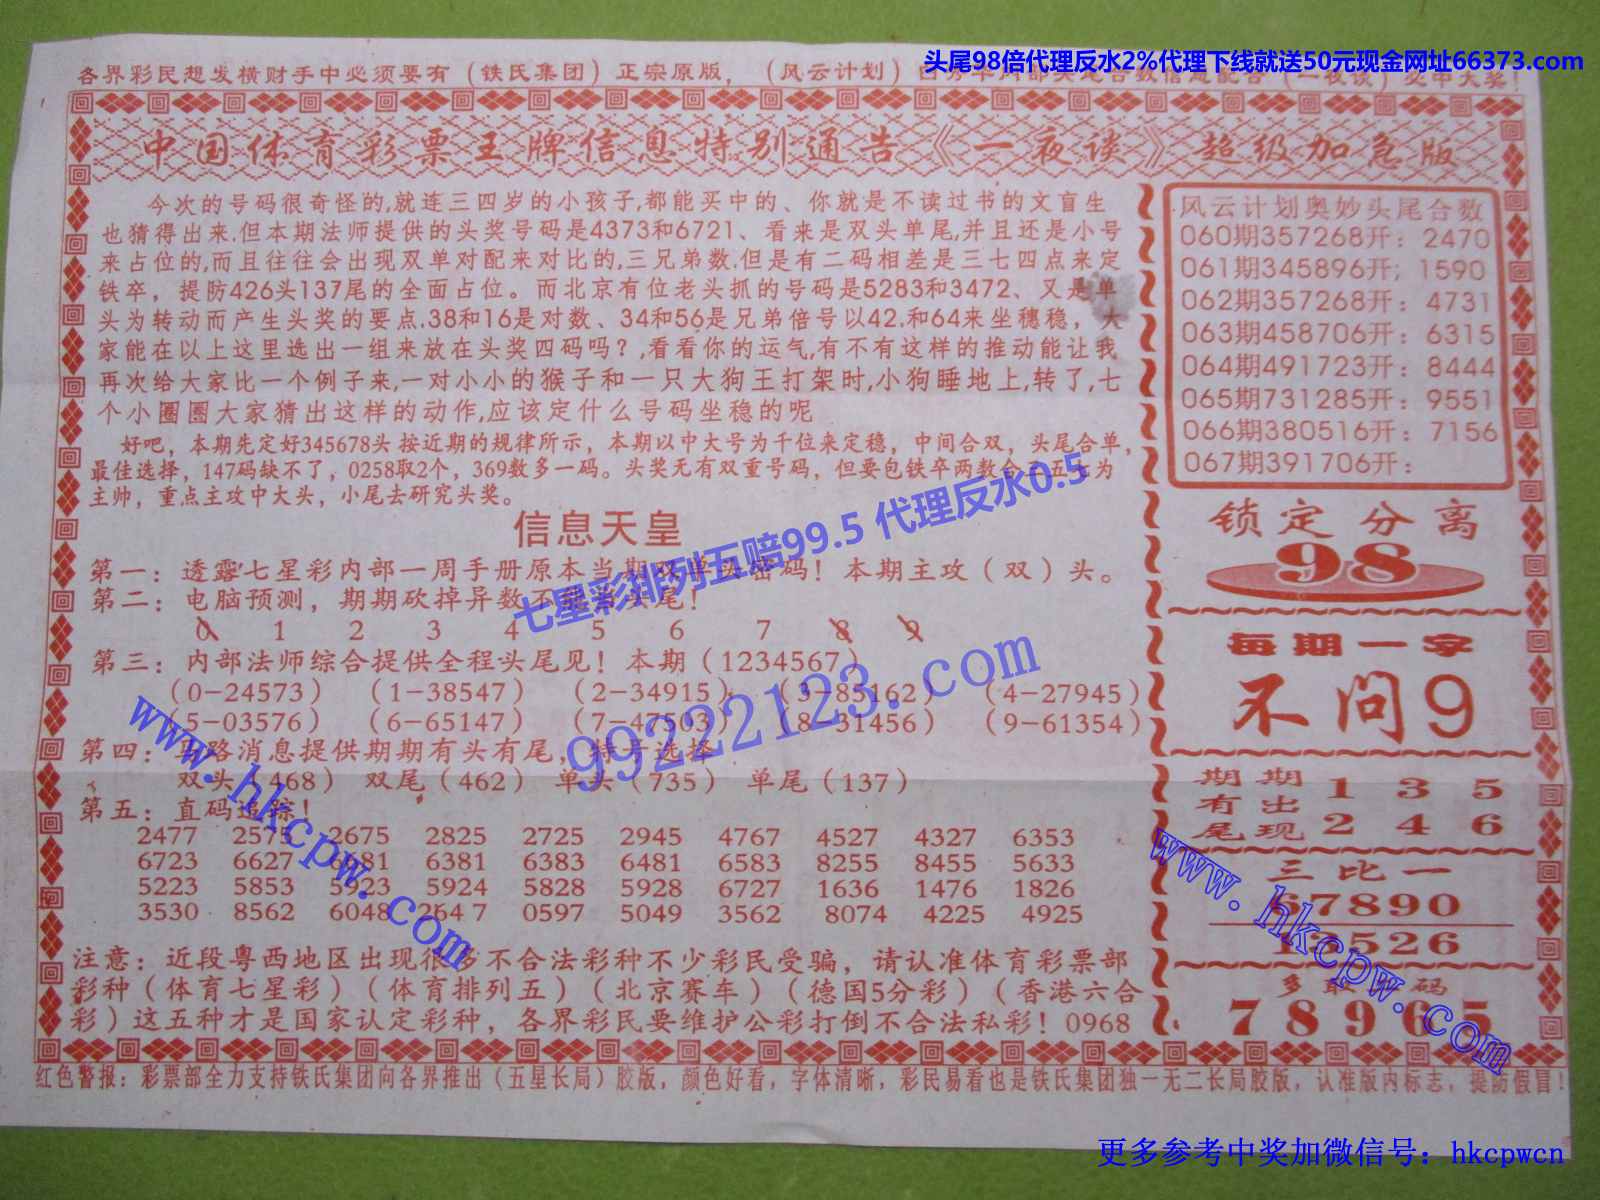 头尾98倍代理反水2%代理下线就送50元现金网址66373.com
各界彩民想发横财手中必须要有（铁氏集团）正宗原版，（风云计划）
中国体育彩票王牌信息特别通告《一夜谈》超级加急版
今次的号码很奇怪的,就连三四岁的小孩子,都能买中的、你就是不读过书的文盲生
也猜得出来.但本期法师提供的头奖号码是4373和6721、看来是双头单尾,并且还是小号
来占位的,而且往往会出现双单对配来对比的,三兄弟数.但是有二码相差是三七四点来定
铁卒，提防426头137尾的全面占位。而北京有位老头抓的号码是5283和3472、又是单
头为转动而产生头奖的要点.38和16是对数、34和56是兄弟倍号以42.和64来坐穗稳，大
家能在以上这里选出一组来放在头奖四码吗？,看看你的运气,有不有这样的推动能让我
再次给大家比一个例子来,一对小小的猴子和一只大狗王打架时,小狗睡地上,转了,七
个小圈圈大家猜出这样的动作,应该定什么号码坐稳的呢
好吧，本期先定好345678头按近期的规律所示，本期以中大号为千位来定稳，中间合双，头尾合单，
最佳选择，147码缺不了，0258取2个，369数多一码。头奖无有双重号码，但要包铁卒两数合三五七为
主帅，重点主攻中大头，小尾去研究头奖。
七星彩排列五赔99.5 代理反水0.5
信息天皇
第一：透露七星彩内部一周手册原本当期双单头密码！本期主攻（双）头。
第二：电脑预测，期期砍掉异数不能当头尾！
0 1 2 3 4 5 6 7 8 9
第三：内部法师综合提供全程头尾见！本期（1234567）
（0-24573）（1-38547）（2-34915）（3-85162）（4-27945）
（5-03576）（6-65147）（7-47503）（8-31456）（9-61354）
第四：马路消息提供期期有头有尾，特号选择
双头（468） 双尾（462） 单头（735） 单尾（137）
第五：直码追踪！
2477 2575 2675 2825 2725 2945 4767 4527 4327 6353
6723 6627 6381 6383 6481 6583 8255 8455 5633
5223 5853 5623 5924 5828 5928 6727 1636 1476 1826
3530 8562 6048 2647 0597 5049 3562 8074 4225 4925
注意：近段粤西地区出现很多不合法彩种不少彩民受骗，请认准体育彩票部
彩种（体育七星彩）（体育排列五）（北京赛车）（德国5分彩）（香港六合
彩）这五种才是国家认定彩种，各界彩民要维护公彩打倒不合法私彩！0968
风云计划奥妙头尾合数
060期357268开：2470
061期345896开；1590
062期357268开：4731
063期458706开：6315
064期491723开：8444
065期731285开：9551
066期380516开：7156
067期391706开：
锁定分离
98
每期一字
不问9
期期有出尾现
1 3 5
2 4 6
三比一
67890
13526
多取一码
78965
红色警报：彩票部全力支持铁氏集团向各界推出（五星长局）胶版，颜色好看，字体清晰，彩民易看也是铁氏集团独一无二长局胶版，认准版内标志，提防假冒！
99222123.com
www.hkcpw.com
www.hkcpw.com
更多参考中奖加微信号：hkcpwcn